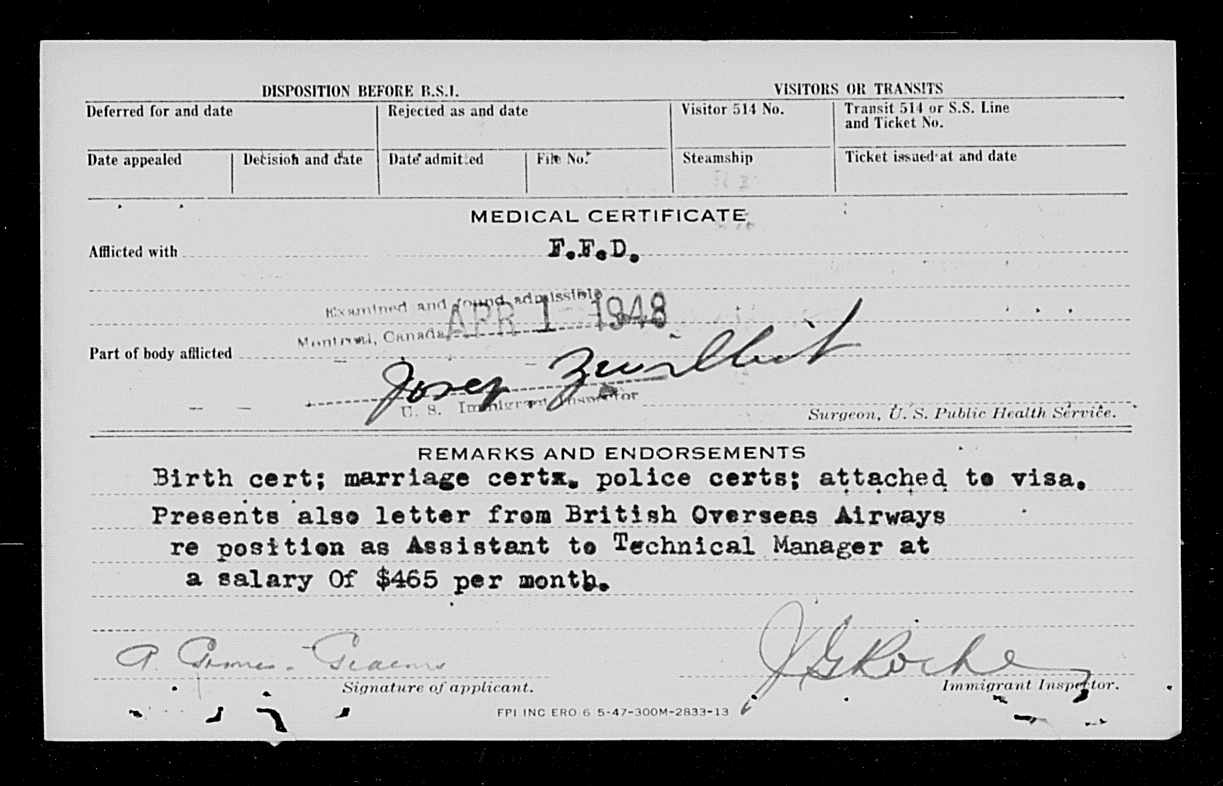 DISPOSITION BEFORE B.S.I. VISITORS OR TRANSITS
Deferred for and date Rejected as and date Visitor 514 No. Transit 514 or S.S. Line
and Ticket No.
Date appealed Decision and date Date admitted File No. Steamship Ticket issued at and date
MEDICAL CERTIFICATE
Afflicted with F.F.D.
Examined and found admissible
Montreal, Canada APR 1 1948
Part of body afflicted
U. S. Immigrant Inspector
Surgeon, U. S. Public Health Service.
REMARKS AND ENDORSEMENTS
Birth cert; marriage certx. police certs; attached to visa.
Presents also letter from British Overseas Airways
re position as Assistant to Technical Manager at
a salary Of $465 per month.
J G Roche
Signature of applicant. Immigrant Inspector.
FPI INC ERO 6 5-47-300M-2833-13